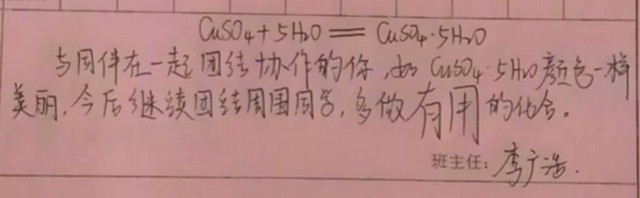 CuSO₄+5H₂O══CuSO₄·5H₂O
与同伴在一起团结协作的你,如CuSO₄·5H₂O颜色一样
美丽,今后继续团结周围同学,多做有用的化合。
班主任:李广浩.